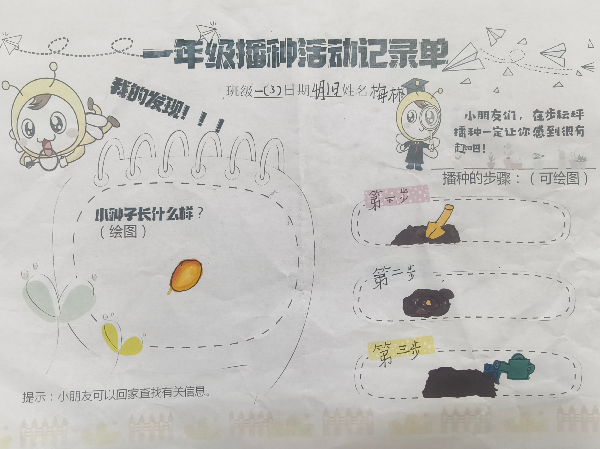 一年级播种活动记录单
班级一(3)日期4月1日姓名梅柿
我的发现！！！
小朋友们，在步耘坪
播种一定让你感到很有
趣吧！
播种的步骤：（可绘图）
小种子长什么样？
（绘图）
第一步
第二步
第三步
提示：小朋友可以回家查找有关信息。